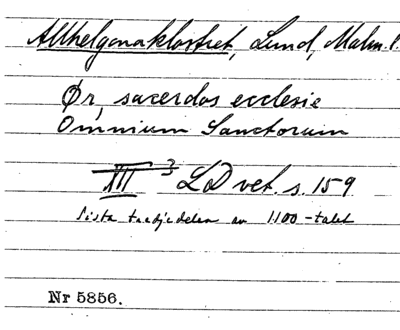 Allhelgonaklostret, Lund, Malm. l.
Ör, sacerdos ecclesie
Omnium Sanctorum
XII 3 LD vet. s. 159
sista tredjedelen av 1100-talet
Nr 5856.